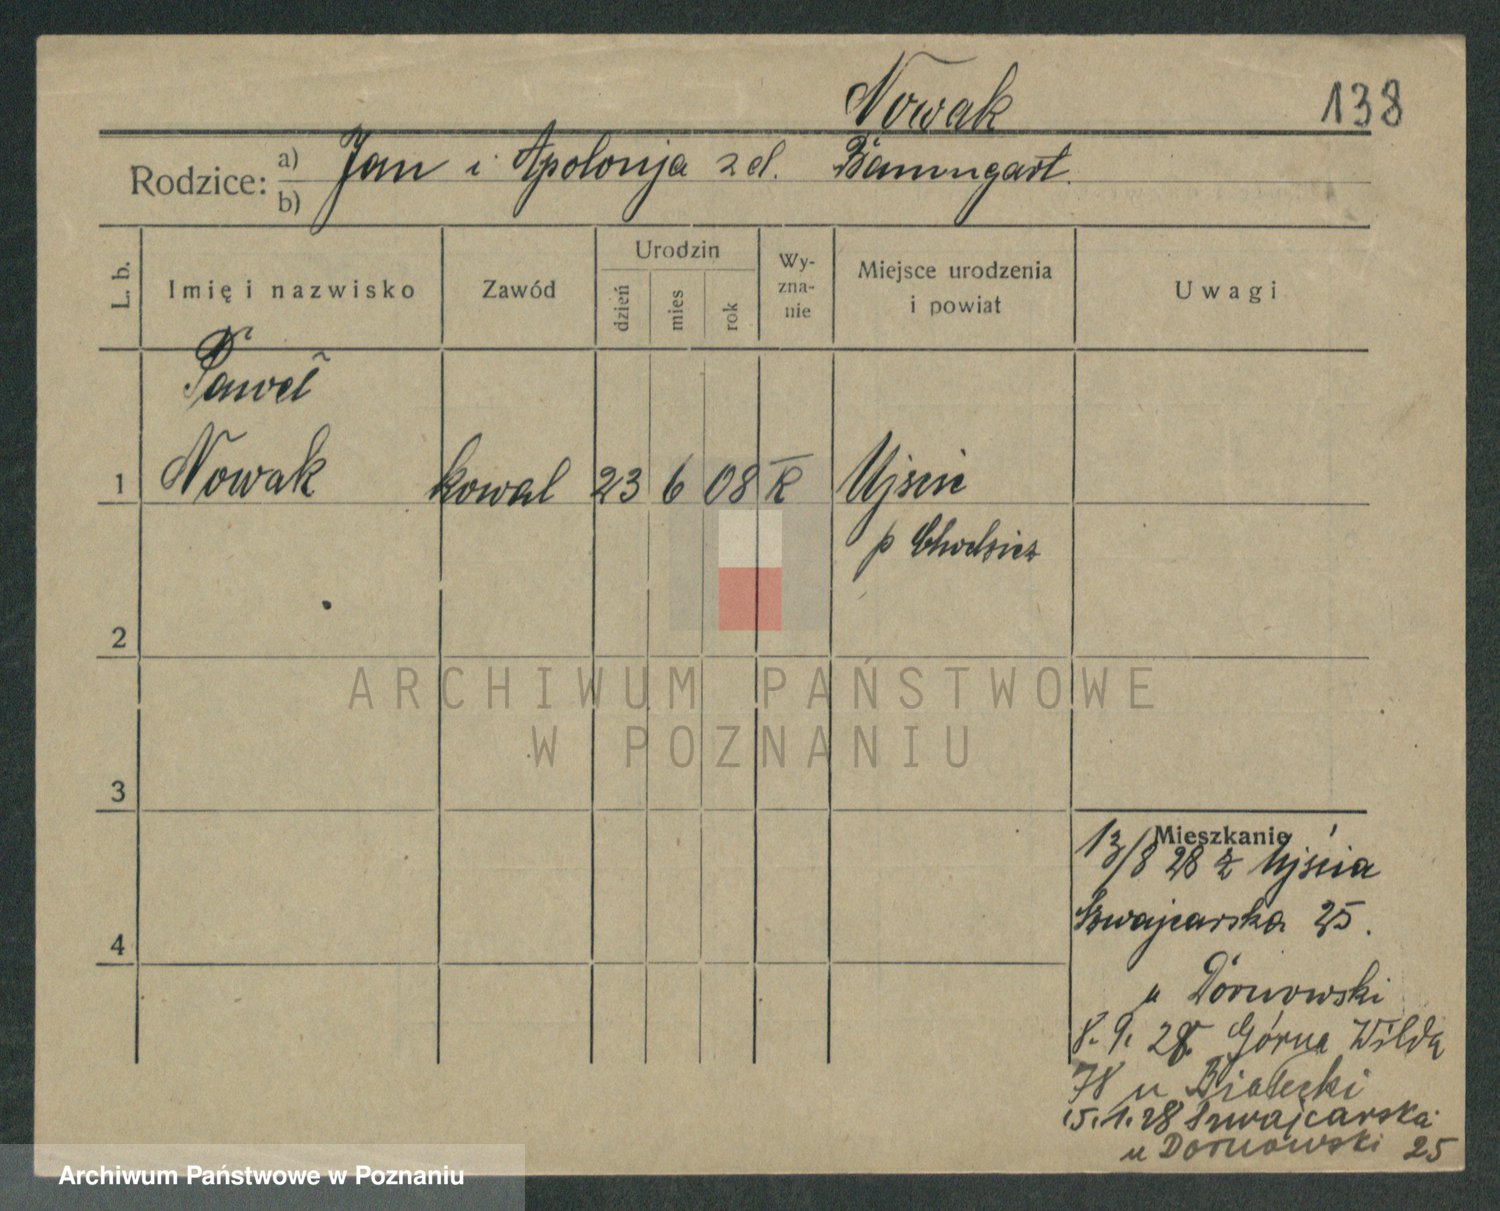 Nowak 138
Rodzice: a) Jan i Apolonja z d. Baumgart.
b)
L. b. Imię i nazwisko Zawód Urodzin dzień mies rok Wy-zna-nie Miejsce urodzenia i powiat Uwagi
Paweł
1 Nowak kowal 23 6 08 R Ujście
p Chodzież
2
ARCHIWUM PAŃSTWOWE
W POZNANIU
3
Mieszkanie
13/8 28 z Ujścia
Szwajcarska 25.
4
u Dornowski
8. 9. 28. Górna Wilda
78 u Białecki
15. 1. 28 Szwajcarska
u Dornowski 25
Archiwum Państwowe w Poznaniu